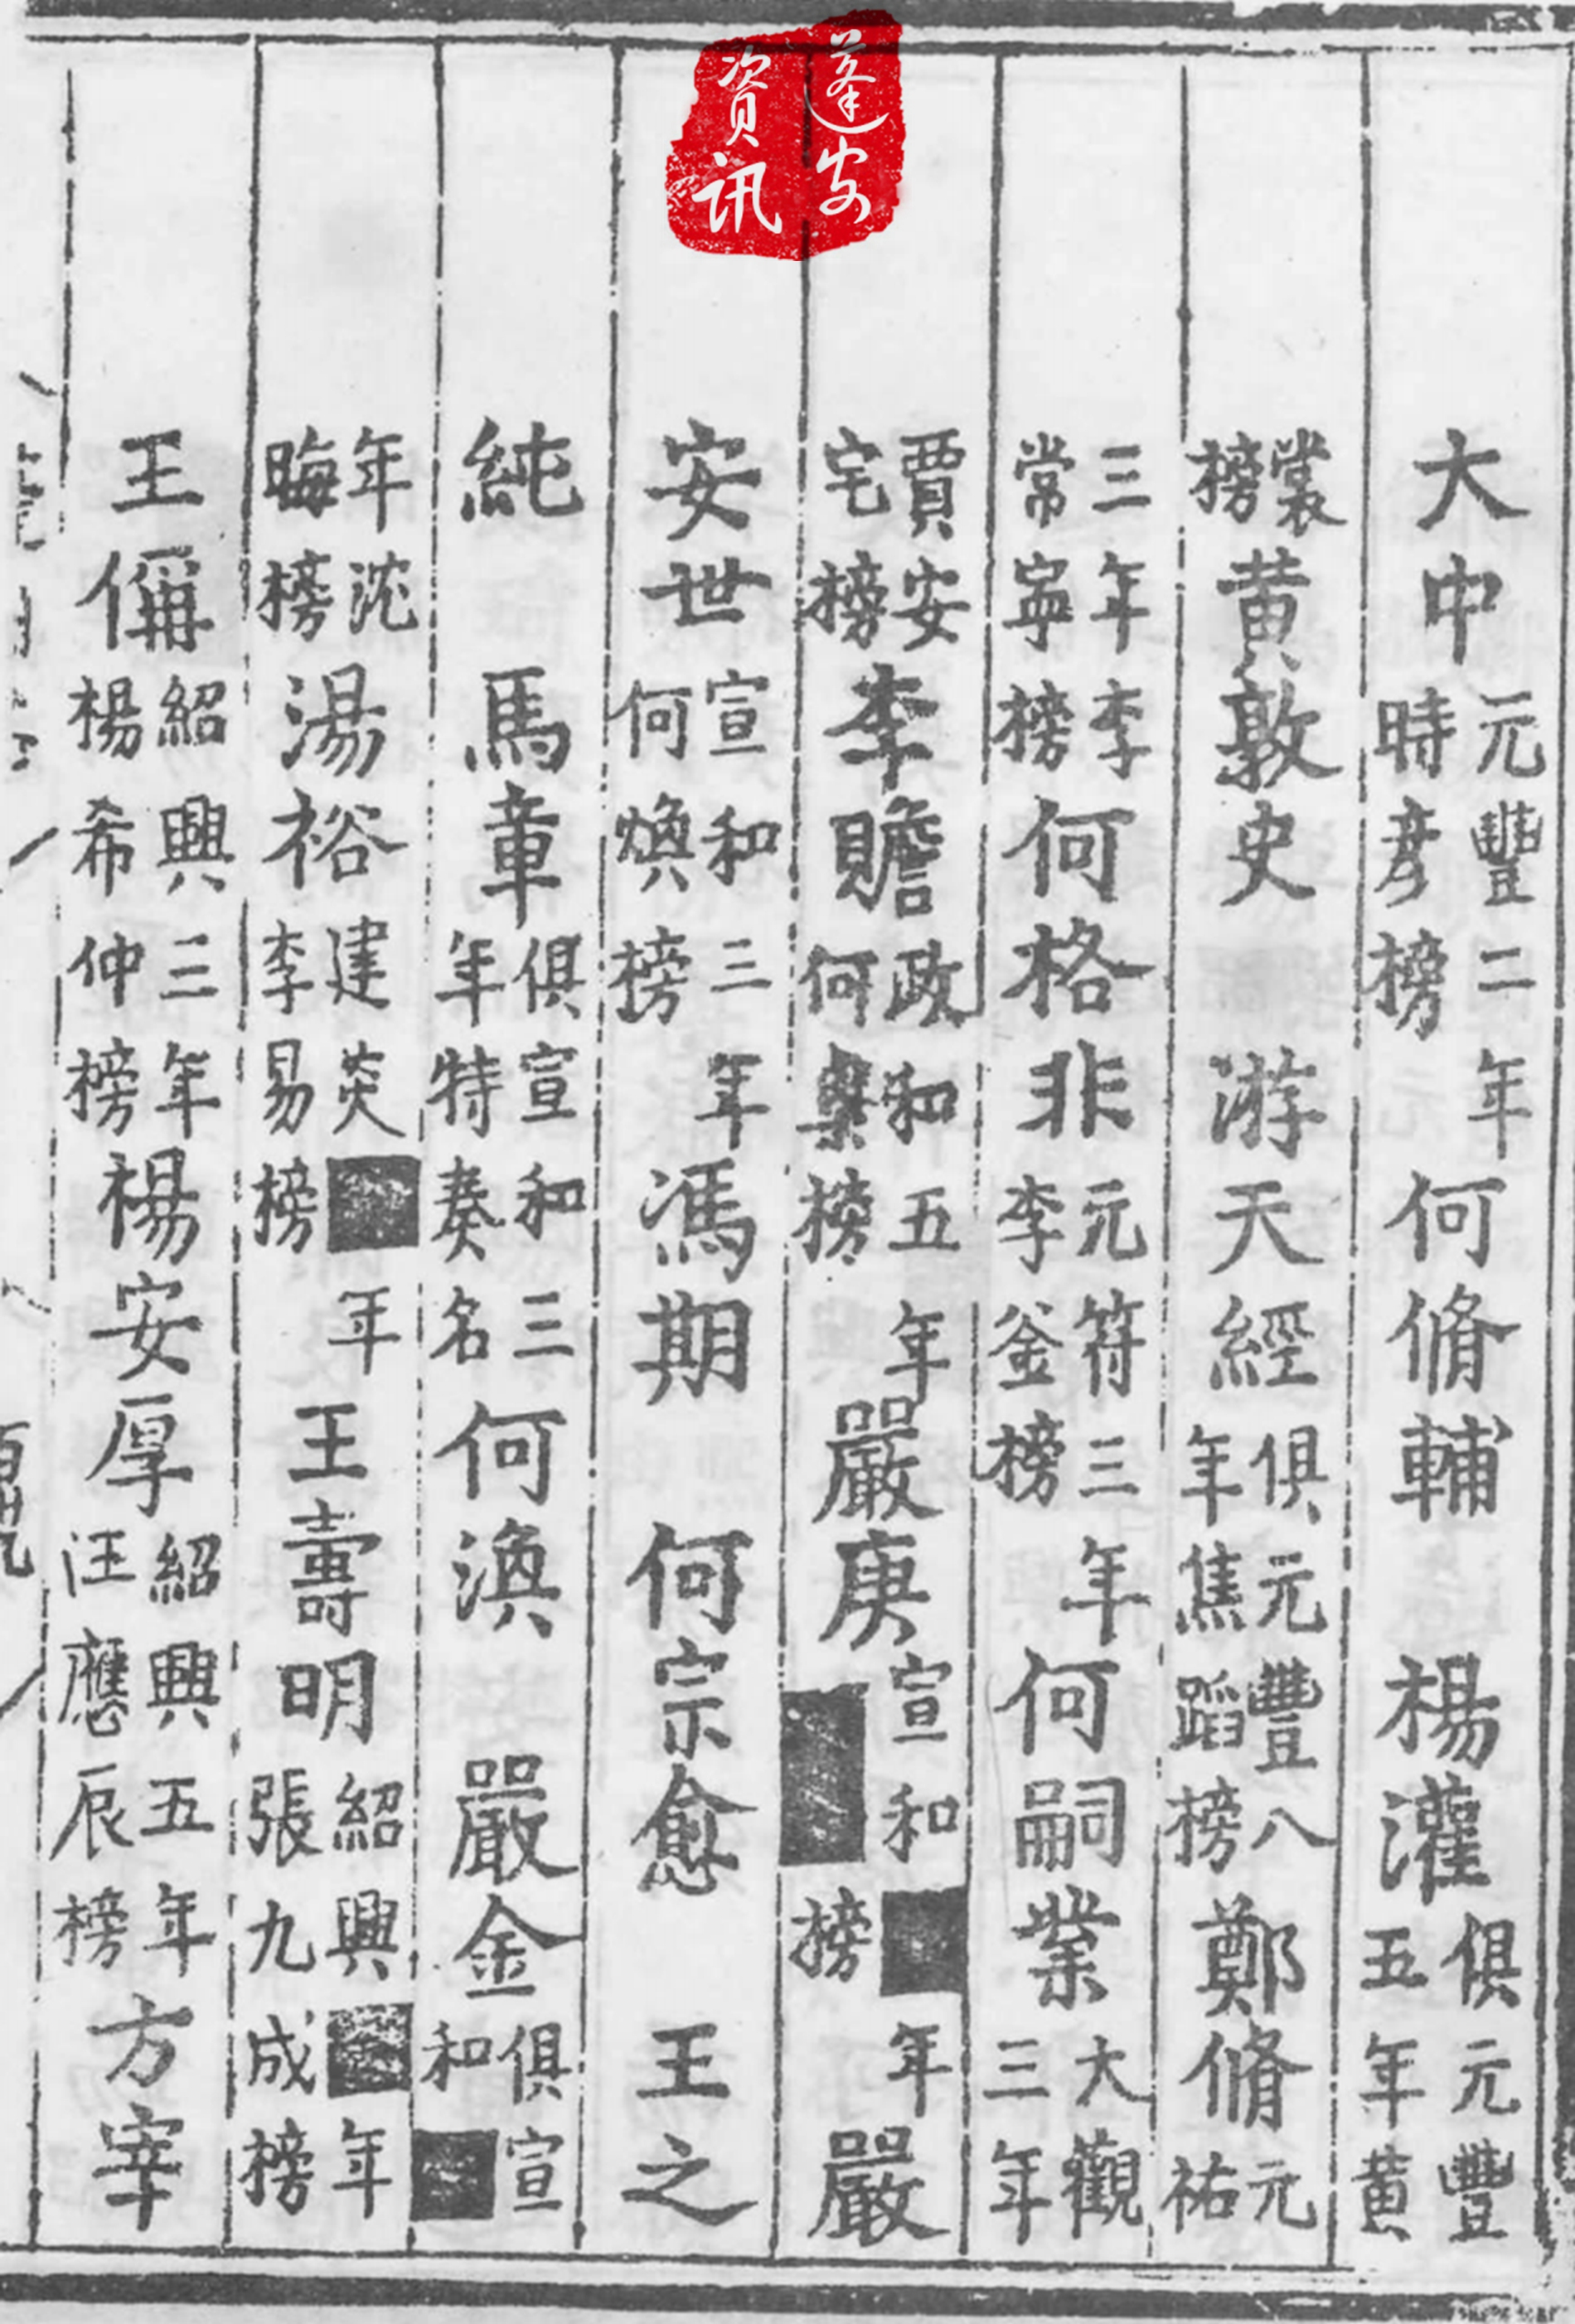 蓬安
資讯
大中元豐二年時彦榜何脩輔 楊灌俱元豐五年黄
裳榜黄敦史 游天經俱元豐八年焦蹈榜鄭脩元祐
三年李常寧榜何格非元符三年李釜榜何嗣業大觀三年
賈安宅榜李贍政和五年何㮚榜嚴庚宣和年榜嚴
安世宣和三年何煥榜馮期 何宗愈 王之
純 馬章俱宣和三年特奏名何渙 嚴金俱宣和
年沈晦榜湯裕建炎年李易榜王壽明紹興年張九成榜
王偁紹興三年楊希仲榜楊安厚紹興五年汪應辰榜方宰